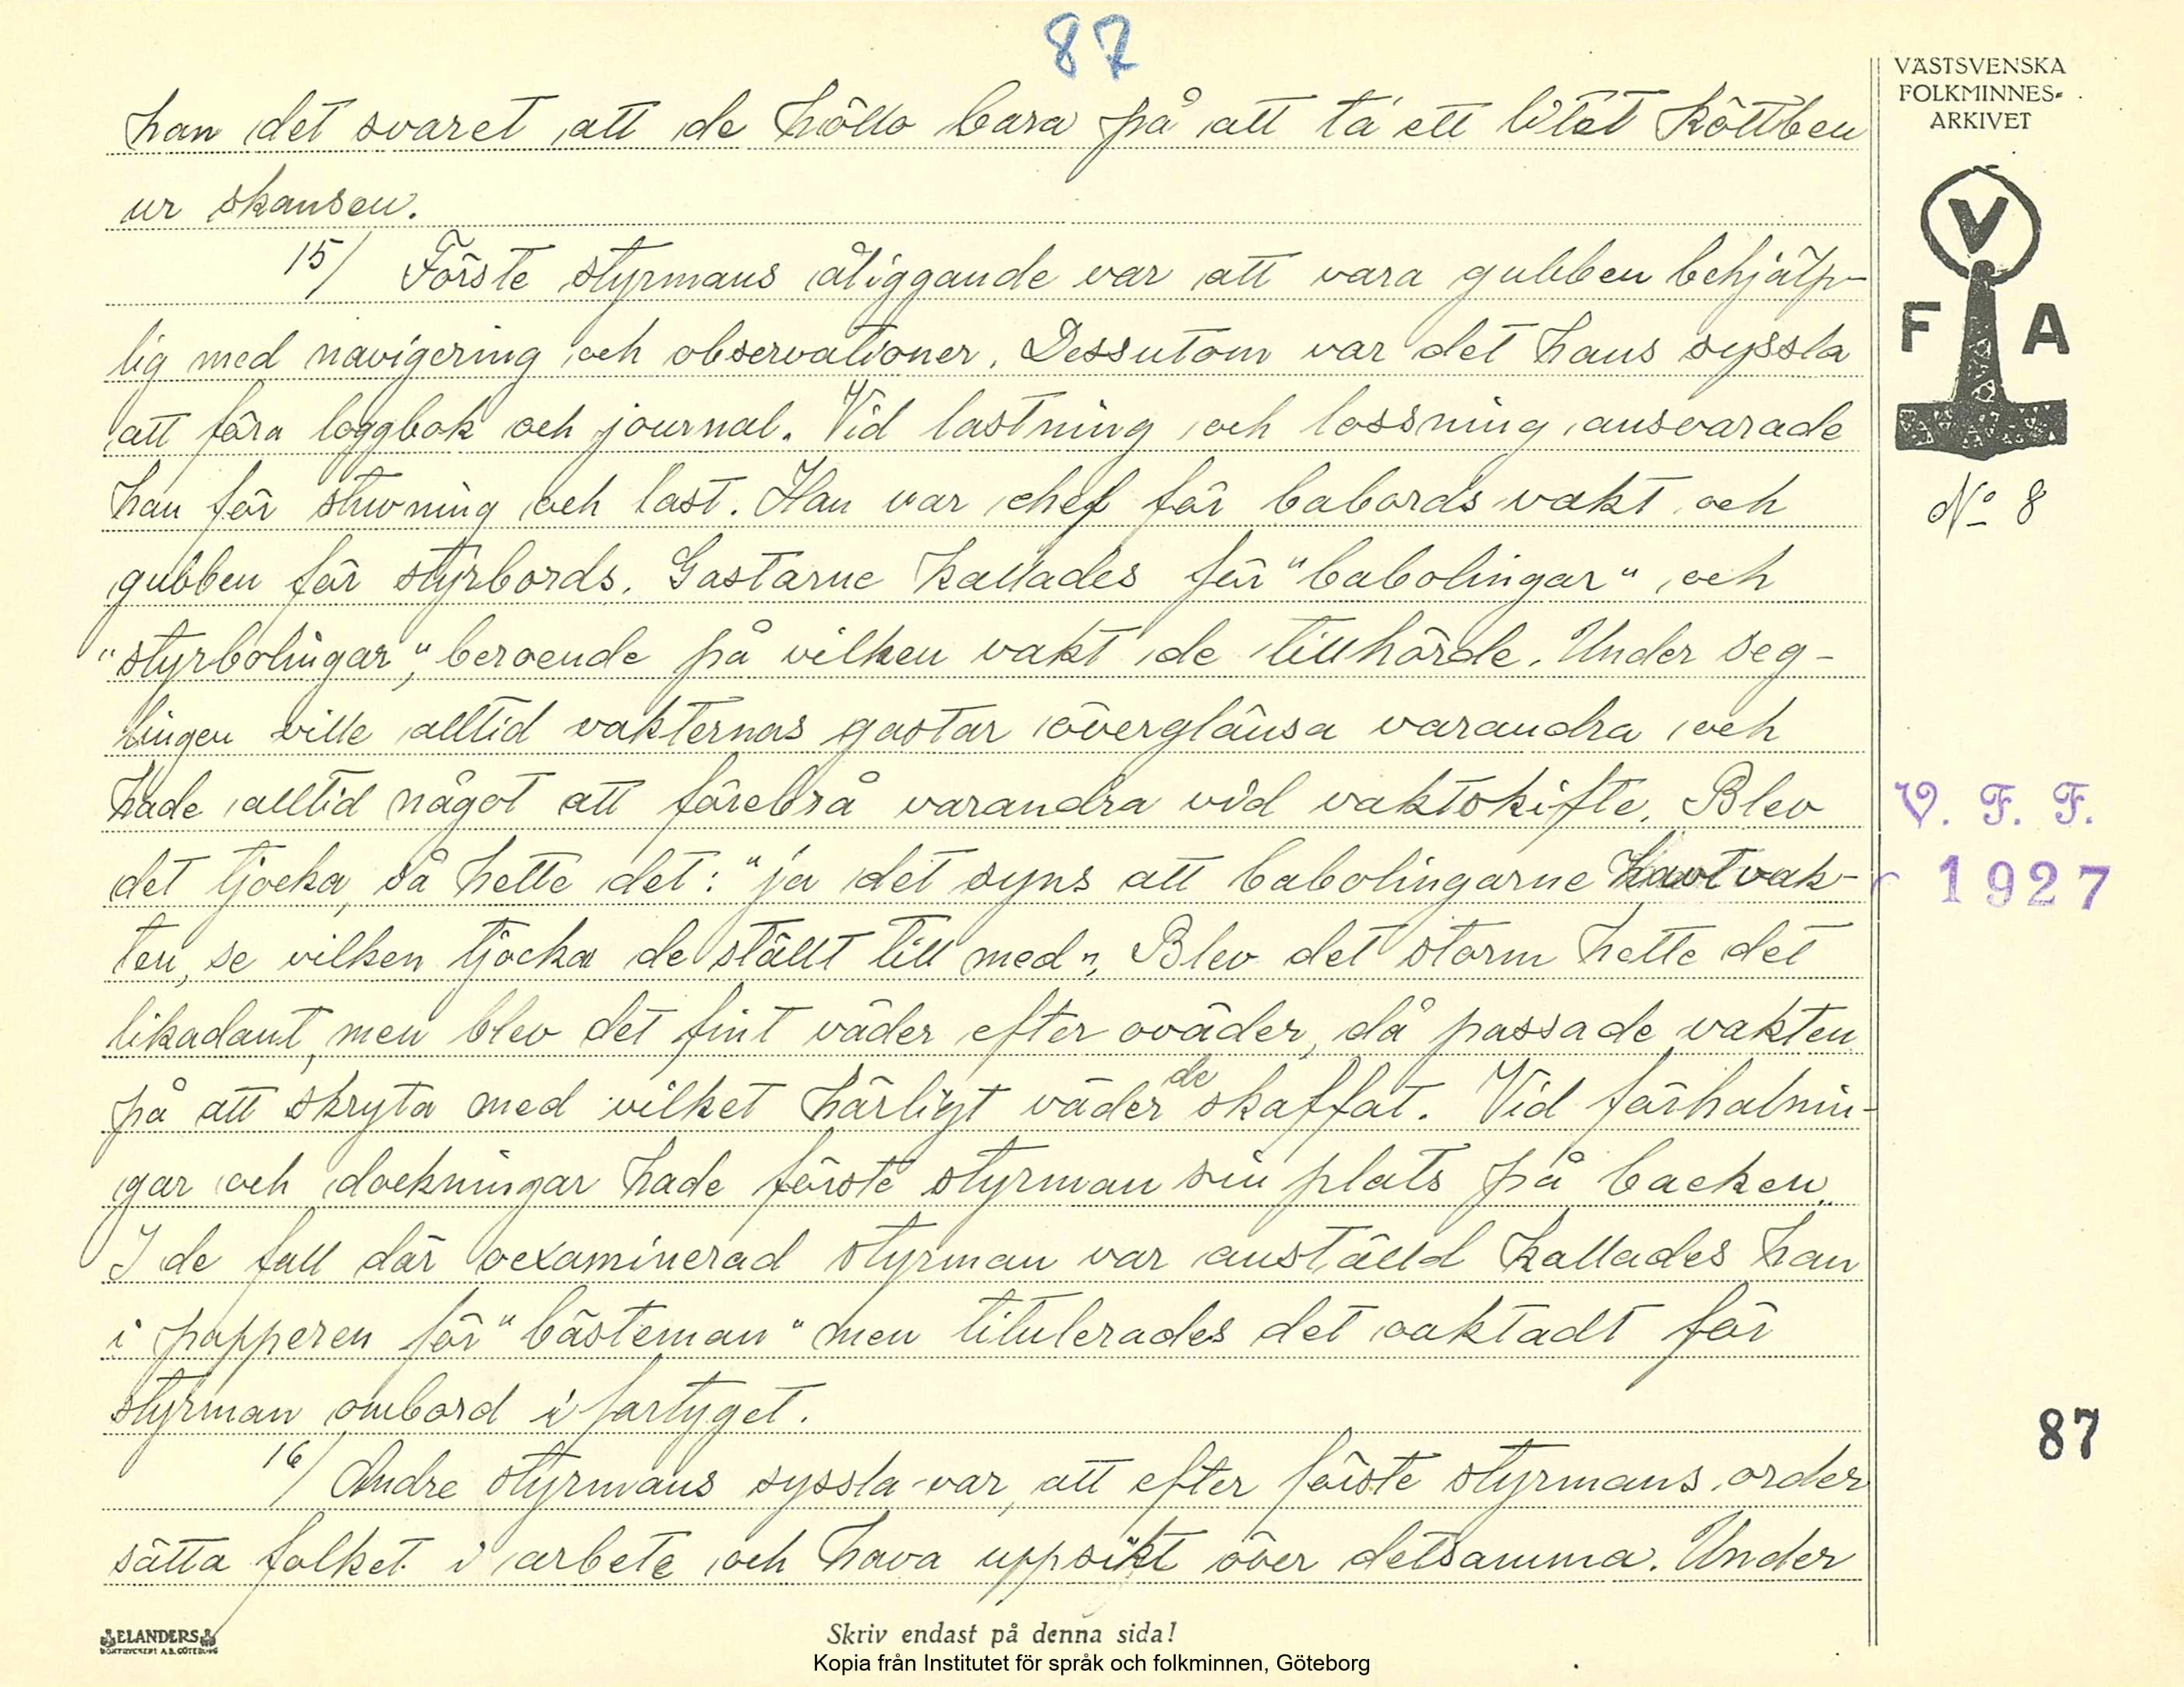 87
han det svaret att de höllo bara på att ta' ett litet köttben
ur skansen.
15/ Förste styrmans åliggande var att vara gubben behjälp-
lig med navigering och observationer. Dessutom var det hans syssla
att föra loggbok och journal. Vid lastning och lossning ansvarade
han för stuvning och last. Han var chef för babords vakt och
gubben för styrbords. Gastarne kallades för "babolingar" och
"styrbolingar", beroende på vilken vakt de tillhörde. Under seg-
lingen ville alltid vakternas gastar överglänsa varandra och
hade alltid något att förebrå varandra vid vaktskifte. Blev
det tjocka, så hette det: "ja det syns att babolingarne havt vak-
ten, se vilken tjocka de ställt till med". Blev det storm hette det
likadant, men blev det fint väder efter oväder, då passade vakten
på att skryta med vilket härligt väder de skaffat. Vid förhalnin-
gar och dockningar hade förste styrman sin plats på backen.
I de fall där oexaminerad styrman var anställd kallades han
i papperen för "bästeman" men titulerades det oaktadt för
styrman ombord i fartyget.
16/ Andre styrmans syssla var, att efter förste styrmans order
sätta folket i arbete och hava uppsikt över detsamma. Under
VÄSTSVENSKA
FOLKMINNES-
ARKIVET
V
F A
No 8
V. F. F.
1927
87
ELANDERS
BOKTRYCKERI A.B. GÖTEBORG
Skriv endast på denna sida!
Kopia från Institutet för språk och folkminnen, Göteborg